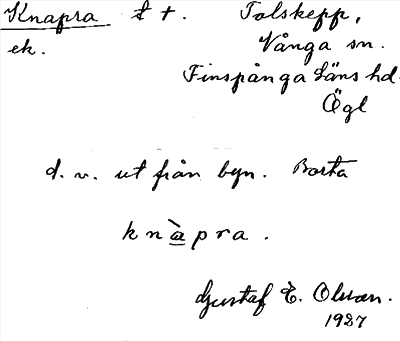 Knapra t †. Tolskepp,
ek. Vånga sn.
Finspånga läns hd.
Ögl
d. v. ut från byn. Borta
knàpra.
Gustaf E. Olsson.
1927